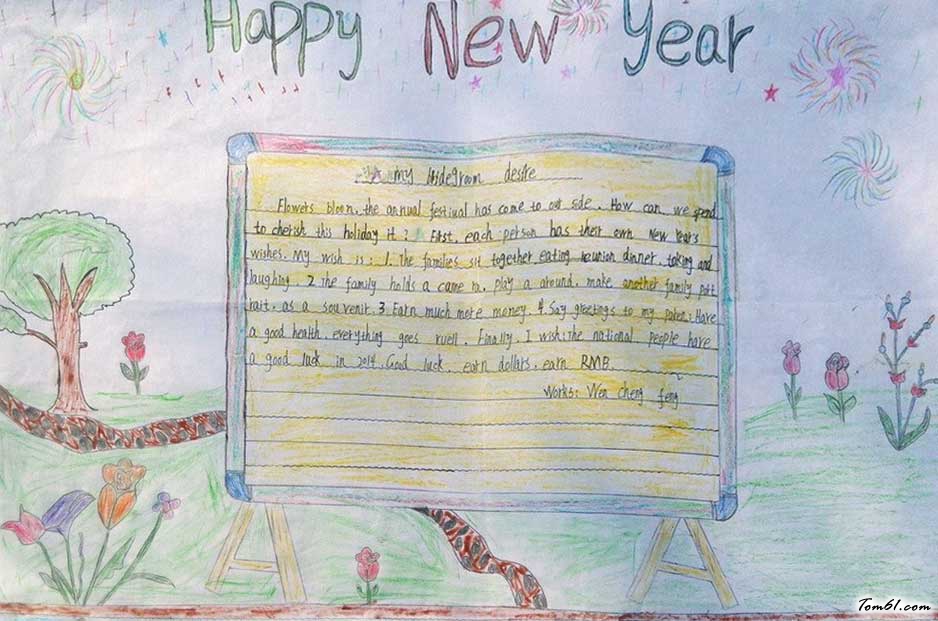 Happy New Year
my bridegroom desire
Flowers bloon, the annual festival has come to out side. How can we spend
to cherish this holiday it? First, each person has their own New Year's
wishes. My wish is: 1. The families sit together eating reunion dinner, taking and
laughing. 2 The family holds a came ra, play a around, make another family port
rait, as a souvenir. 3 Earn much more money. 4 Say greetings to my paken: Have
a good health, everything goes ruell. Finally, I wish: The national people have
a good luck in 2014. Good luck, earn dollars, earn RMB.
Works: Wen cheng feng
Tom61.com